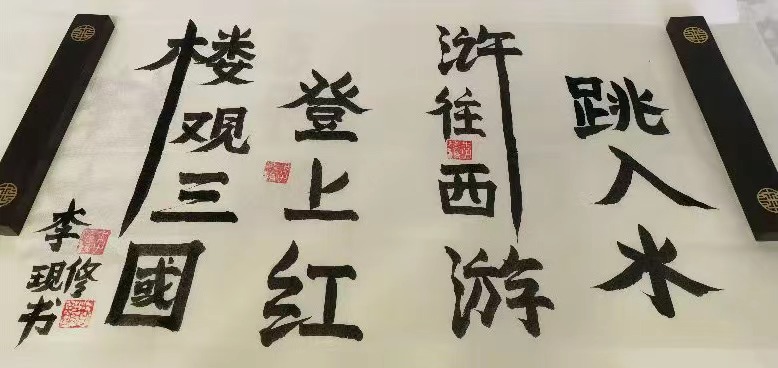 跳入水
浒往西游
登上红
楼观三國
李修现书